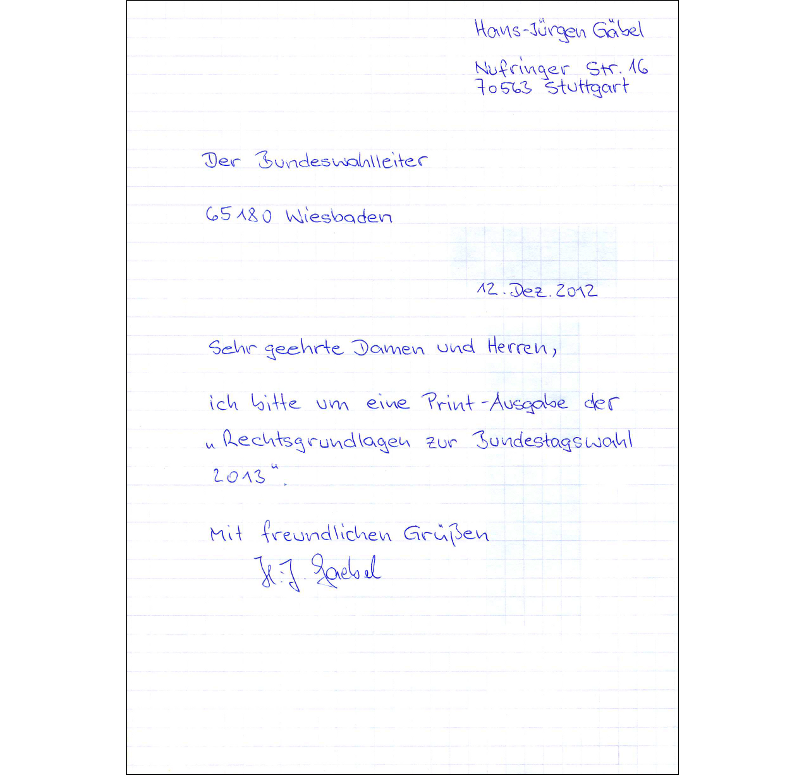 Hans-Jürgen Gäbel
Nufringer Str. 16
70563 Stuttgart
Der Bundeswahlleiter
65180 Wiesbaden
12. Dez. 2012
Sehr geehrte Damen und Herren,
ich bitte um eine Print-Ausgabe der
„Rechtsgrundlagen zur Bundestagswahl
2013“.
Mit freundlichen Grüßen
H.-J. Gaebel